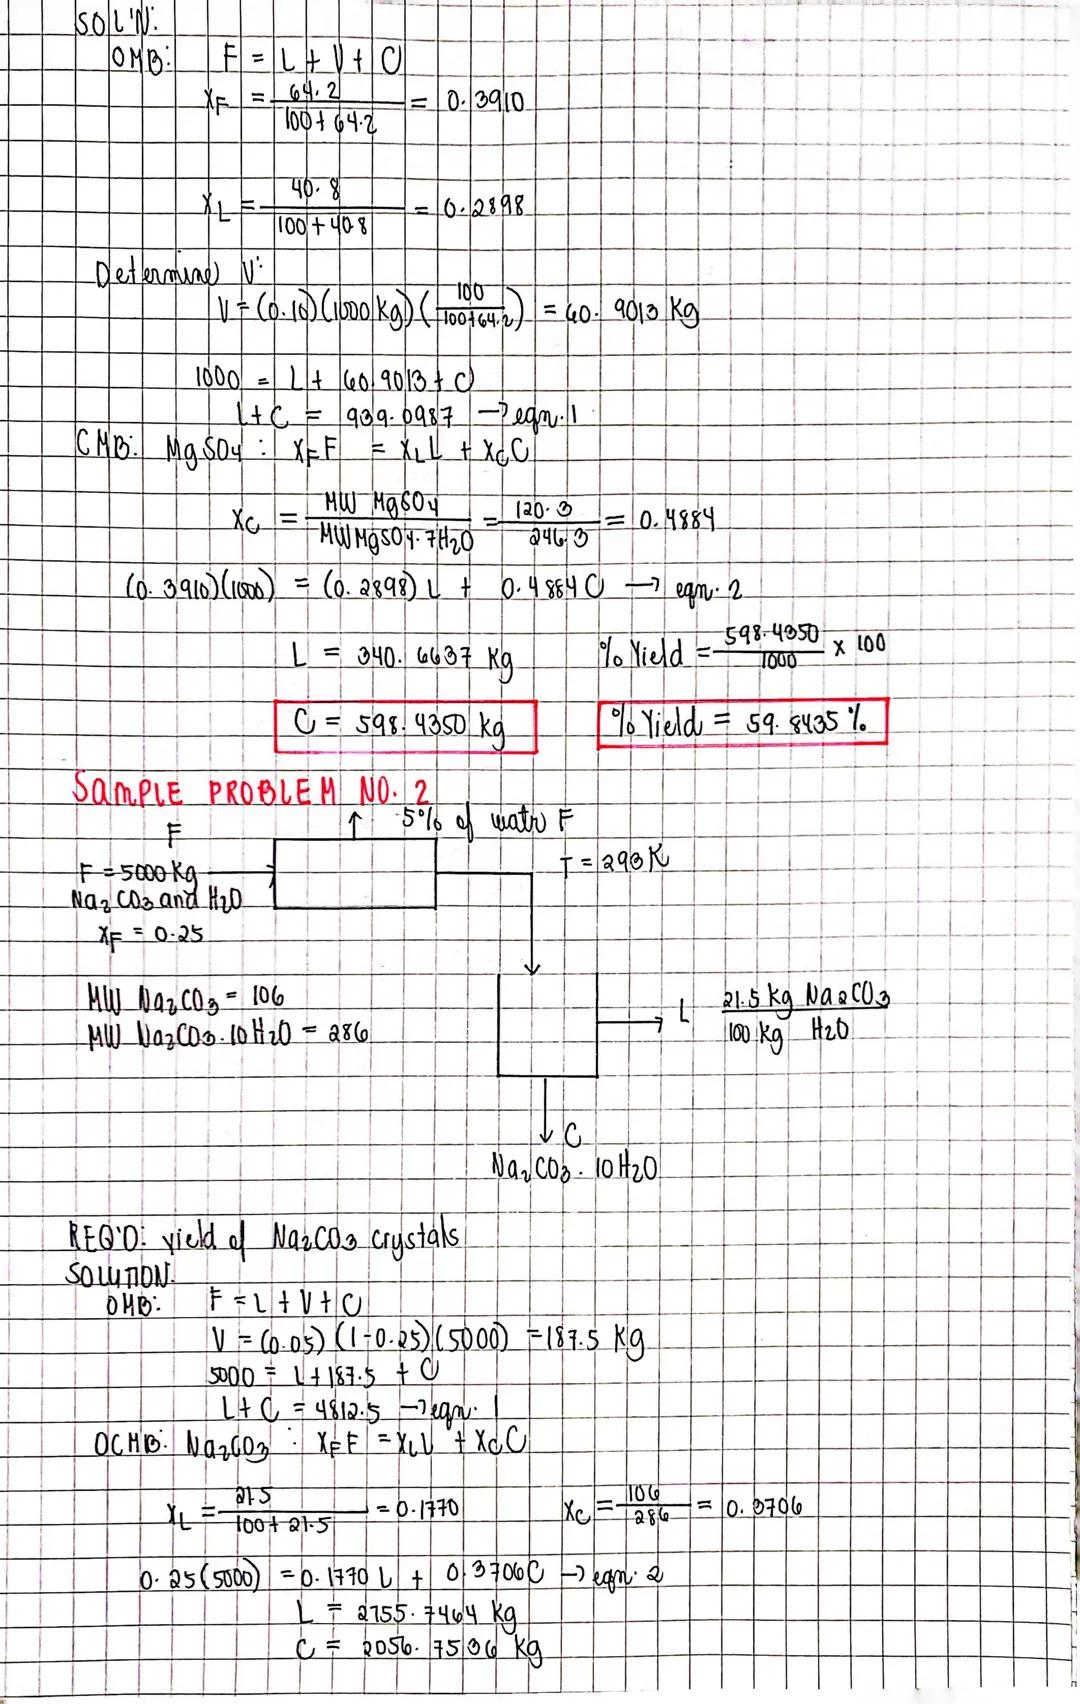 SOL'N:
OMB: F = L + V + C
XF = 64.2 / 100 + 64.2 = 0.3910
XL = 40.8 / 100 + 40.8 = 0.2898
Determine V:
V = (0.10)(1000 kg)(100 / 100+64.2) = 60.9013 kg
1000 = L + 60.9013 + C
L + C = 939.0987 → eqn. 1
CMB: MgSO4 : XFF = XLL + XCC
XC = MW MgSO4 / MW MgSO4·7H2O = 120.3 / 246.3 = 0.4884
(0.3910)(1000) = (0.2898) L + 0.4884 C → eqn. 2
L = 340.6637 kg % Yield = 598.4350 / 1000 x 100
C = 598.4350 kg % Yield = 59.8435 %
SAMPLE PROBLEM NO. 2
↑ 5% of watr F
F
F = 5000 kg T = 293 K
Na2CO3 and H2O
XF = 0.25
MW Na2CO3 = 106 → L 21.5 kg Na2CO3 / 100 kg H2O
MW Na2CO3·10H2O = 286
C
Na2CO3·10H2O
REQ'D: yield of Na2CO3 crystals
SOLUTION.
OMB: F = L + V + C
V = (0.05)(1-0.25)(5000) = 187.5 kg
5000 = L + 187.5 + C
L + C = 4812.5 → eqn. 1
OCMB: Na2CO3 : XFF = XLL + XCC
XL = 21.5 / 100 + 21.5 = 0.1770 XC = 106 / 286 = 0.3706
0.25(5000) = 0.1770 L + 0.3706C → eqn. 2
L = 2755.7464 kg
C = 2056.7536 kg